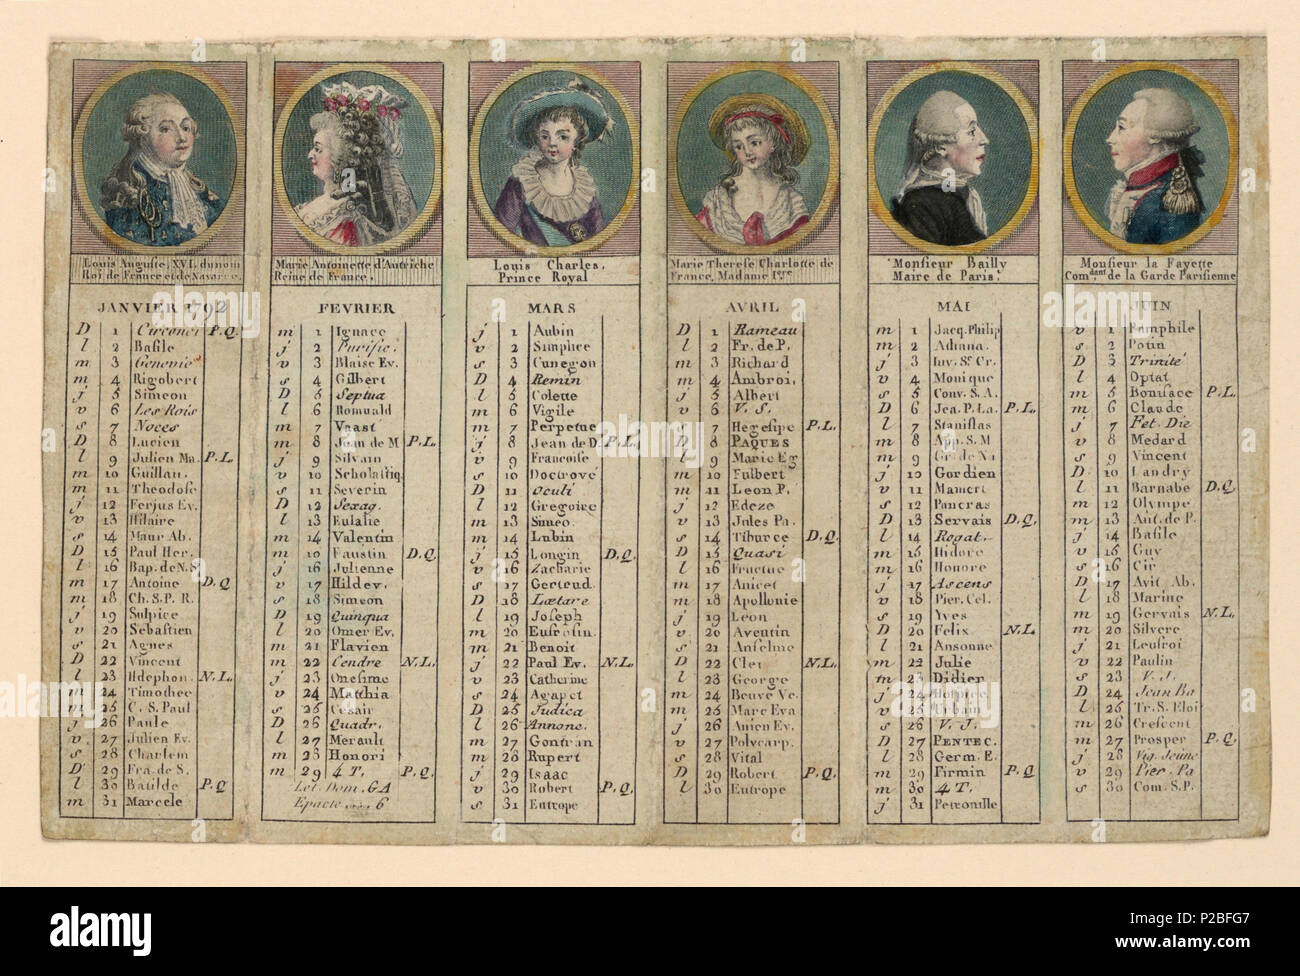 Louis Auguste, XVI. du nom
Roi de France et de Navarre.
JANVIER 1792
D 1 Circonci P.Q.
l 2 Basile
m 3 Genevie
m 4 Rigobert
j 5 Simeon
v 6 Les Rois
s 7 Noces
D 8 Lucien
l 9 Julien Ma. P.L.
m 10 Guillau.
m 11 Theodose
j 12 Ferjus Ev.
v 13 Hilaire
s 14 Maur Ab.
D 15 Paul Her.
l 16 Bap. de N.S
m 17 Antoine D.Q
m 18 Ch. S.P. R.
j 19 Sulpice
v 20 Sebastien
s 21 Agnes
D 22 Vincent
l 23 Ildephon. N.L.
m 24 Timothee
m 25 C. S. Paul
j 26 Paule
v 27 Julien Ev.
s 28 Charlem
D 29 Fra. de S.
l 30 Batilde P.Q
m 31 Marcele
Marie Antoinette d'Autriche
Reine de France.
FEVRIER
m 1 Ignace
j 2 Purific.
v 3 Blaise Ev.
s 4 Gilbert
D 5 Septua
l 6 Romuald
m 7 Vaast
m 8 Jean de M P.L.
j 9 Silvain
v 10 Scholastiq
s 11 Severin
D 12 Sexag.
l 13 Eulalie
m 14 Valentin
m Faustin D.Q.
j 16 Julienne
v 17 Hildev.
s 18 Simeon
D 19 Quinqua
l 20 Omer Ev.
m 21 Flavien
m 22 Cendre N.L.
j 23 Onesime
v 24 Matthia
s 25 Cesair
D 26 Quadr.
l 27 Merault
m 28 Honori
m 29 4 T. P.Q.
Let. Dom. GA
Epacte .... 6
Louis Charles,
Prince Royal
MARS
j 1 Aubin
v 2 Simplice
s 3 Cunegon
D 4 Remin
l 5 Colette
m 6 Vigile
m 7 Perpetue
j 8 Jean de D. P.L.
v 9 Francoise
s 10 Doctrové
D 11 Oculi
l 12 Gregoire
m 13 Simeo.
m 14 Lubin
j 15 Longin D.Q.
v 16 Zacharie
s 17 Gertrud.
D 18 Lætare
l 19 Joseph
m 20 Eufrosin.
m 21 Benoit
j 22 Paul Ev. N.L.
v 23 Catherine
s 24 Agapet
D 25 Judica
l 26 Annonc.
m 27 Gontran
m 28 Rupert
j 29 Isaac
v 30 Robert P.Q.
s 31 Eutrope
Marie Therese Charlotte de
France, Madame 1ere
AVRIL
D 1 Rameau
l 2 Fr. de P.
m 3 Richard
m 4 Ambroi.
j 5 Albert
v 6 V. S.
s 7 Hegesipe P.L.
D 8 PAQUES
l 9 Marie Eg
m 10 Fulbert
m 11 Leon P.
j 12 Edeze
v 13 Jules Pa.
s 14 Tiburce D.Q.
D 15 Quasi
l 16 Fructue
m 17 Anicet
m 18 Apollonie
j 19 Leon
v 20 Aventin
s 21 Anselme
D 22 Clet N.L.
l 23 George
m 24 Beuve Ve.
m 25 Marc Eva
j 26 Anien Ev.
v 27 Polycarp.
s 28 Vital
D 29 Robert P.Q.
l 30 Eutrope
Monsieur Bailly
Maire de Paris.
MAI
m 1 Jacq. Philip
m 2 Athana.
j 3 Inv. Ste Cr.
v 4 Monique
s 5 Conv. S. A.
D 6 Jea. P. La. P.L.
l 7 Stanislas
m 8 App. S. M
m 9 Gr. de Na
j 10 Gordien
v 11 Mamert
s 12 Pancras
D 13 Servais D.Q.
l 14 Rogat.
m 15 Isidore
m 16 Honore
j 17 Ascens
v 18 Pier. Cel.
s 19 Yves
D 20 Felix N.L
l 21 Ansonne
m 22 Julie
m 23 Didier
j 24 Hospice
v 25 Urbain
s 26 V. J.
D 27 PENTEC.
l 28 Germ. E.
m 29 Firmin P.Q
m 30 4 T.
j 31 Petronille
Monsieur la Fayette
Com.dant de la Garde Parisienne
JUIN
v 1 Pamphile
s 2 Potin
D 3 Trinité
l 4 Optat
m 5 Boniface P.L.
m 6 Claude
j 7 Fet. Die
v 8 Medard
s 9 Vincent
D 10 Landry
l 11 Barnabe D.Q.
m 12 Olympe
m 13 Ant. de P.
j 14 Basile
v 15 Guy
s 16 Cir
D 17 Avit Ab.
l 18 Marine
m 19 Gervais N.L.
m 20 Silvere
j 21 Leufroi
v 22 Paulin
s 23 V. J.
D 24 Jean Ba
l 25 Tr. S. Eloi
m 26 Crescent
m 27 Prosper P.Q.
j 28 Vig. Jeûne
v 29 Pier. Pa
s 30 Com. S.P.
alamy
Image ID: P2BFG7
www.alamy.com